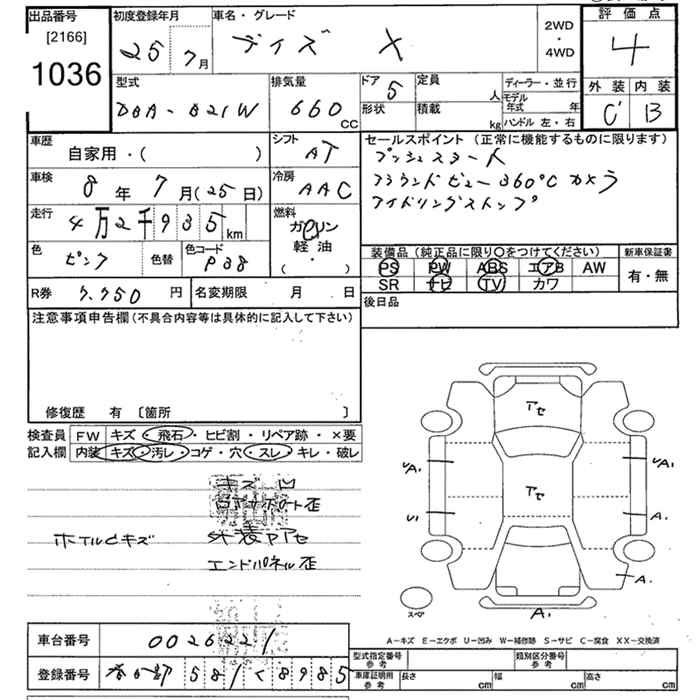 出品番号 初度登録年月 車名・グレード 2WD・4WD 評価点
[2166] 25年 7月 デイズ X 4
1036
型式 排気量 ドア 5 定員 人 ディーラー・並行 外装 内装
DBA-B21W 660 CC 形状 積載 kg モデル年式 年 C B
ハンドル 左・右
車歴 自家用・( ) シフト AT セールスポイント (正常に機能するものに限ります)
プッシュスタート
車検 8年 7月(25日) 冷房 AAC アラウンドビュー360℃カメラ
走行 4万2千935km 燃料 ガソリン アイドリングストップ
軽油・( ・ )
色 ピンク 色替 色コード P38 装備品 (純正品に限り○をつけてください) 新車保証書
PS PW ABS エアB AW 有・無
SR ナビ TV カワ
R券 7,750円 名変期限 月 日 後日品
注意事項申告欄 (不具合内容等は具体的に記入して下さい)
修復歴 有 〔箇所 〕
検査員 FW キズ・飛石・ヒビ割・リペア跡・×要
記入欄 内装 キズ・汚レ・コゲ・穴・スレ・キレ・破レ
キズ 凹
サポート歪
ホイルキズ 外装アセ
エンドパネル歪
アセ
アセ
A1
U1 A1
A1
スペア A1
A-キズ E-エクボ U-凹み W-補修跡 S-サビ C-腐食 XX-交換済
車台番号 0026221
型式指定番号 参考 類別区分番号 参考
登録番号 春日部 581 く 8985
車庫証明用 参考 長さ cm 幅 cm 高さ cm